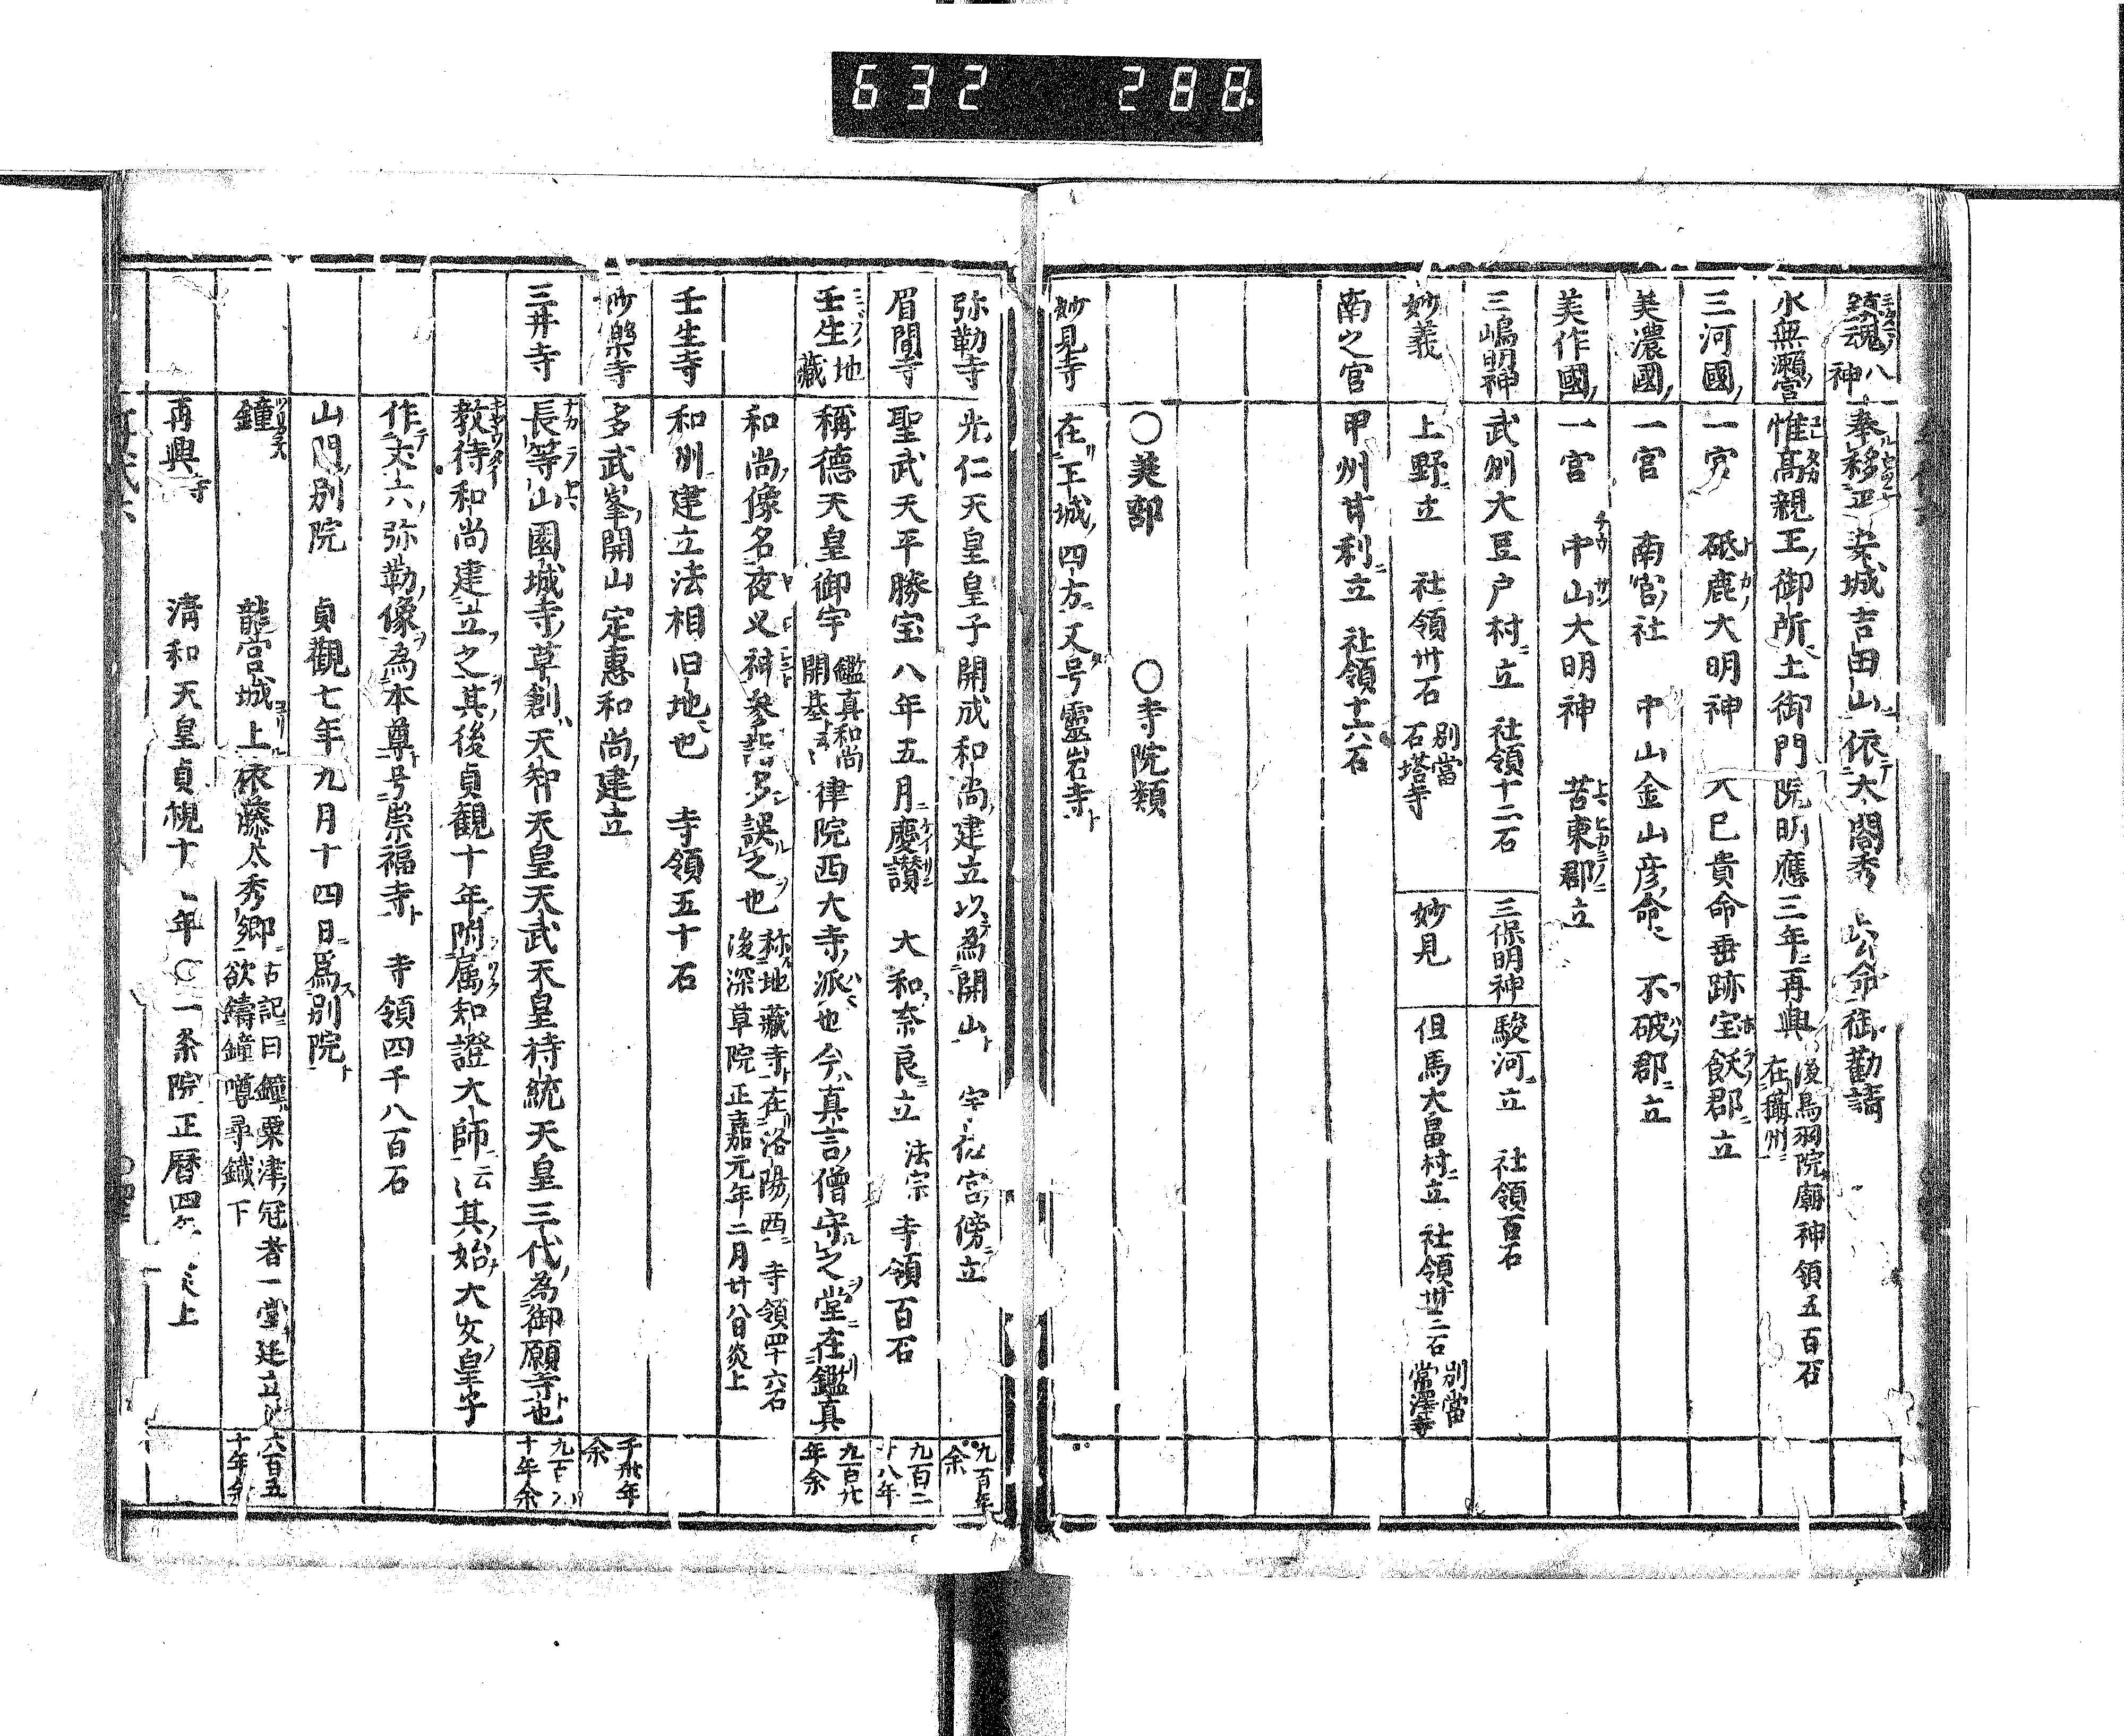 632 288
鎮魂八神 奉移平安城吉田山依太閤秀公命御勸請
水無瀬宮 惟髙親王御所土御門院明應三年再興 後鳥羽院廟神領五百石 在攝州
三河國 一宮 砥鹿大明神 大巳貴命垂跡宝飫郡立
美濃國 一宮 南宮社 中山金山彦命 不破郡立
美作國 一宮 中山大明神 苫東郡立
三嶋明神 武州大豆戸村立 社領十二石 三保明神 駿河立 社領百石
妙義 上野立 社領丗石 別當石塔寺 妙見 但馬大畠村立 社領丗二石 別當常澤寺
南之宮 甲州甘利立 社領十六石
〇美部 〇寺院類
妙見寺 在王城四方又号靈岩寺
弥勒寺 光仁天皇皇子開成和尚建立以為開山 宇佐宮傍立 九百年余
眉間寺 聖武天平勝宝八年五月慶讃 大和奈良立 法宗 寺領百石 九百二十八年
壬生地藏 稱德天皇御宇 鑑真和尚開基 律院西大寺派也今真言僧守之堂在鑑真 九百廿年余
和尚像名夜叉神參詣多誤之也 称地藏寺在洛陽西 寺領四十六石 後深草院正嘉元年二月廿八日炎上
壬生寺 和州建立法相旧地也 寺領五十石
妙樂寺 多武峯開山定惠和尚建立 千丗年余
三井寺 長等山園城寺草創天智天皇天武天皇持統天皇三代為御願寺也 九百 十年余
教待和尚建立之其後貞観十年附属知證大師云其始大友皇子
作丈六弥勒像為本尊号崇福寺 寺領四千八百石
山門別院 貞觀七年九月十四日爲別院
鐘 龍宮城上依藤太秀郷 古記曰鐘粟津冠者一堂建立 欲鑄鐘噂尋鐵下 六百五十年余
再興寺 清和天皇貞観十 年〇一条院正曆四 炎上